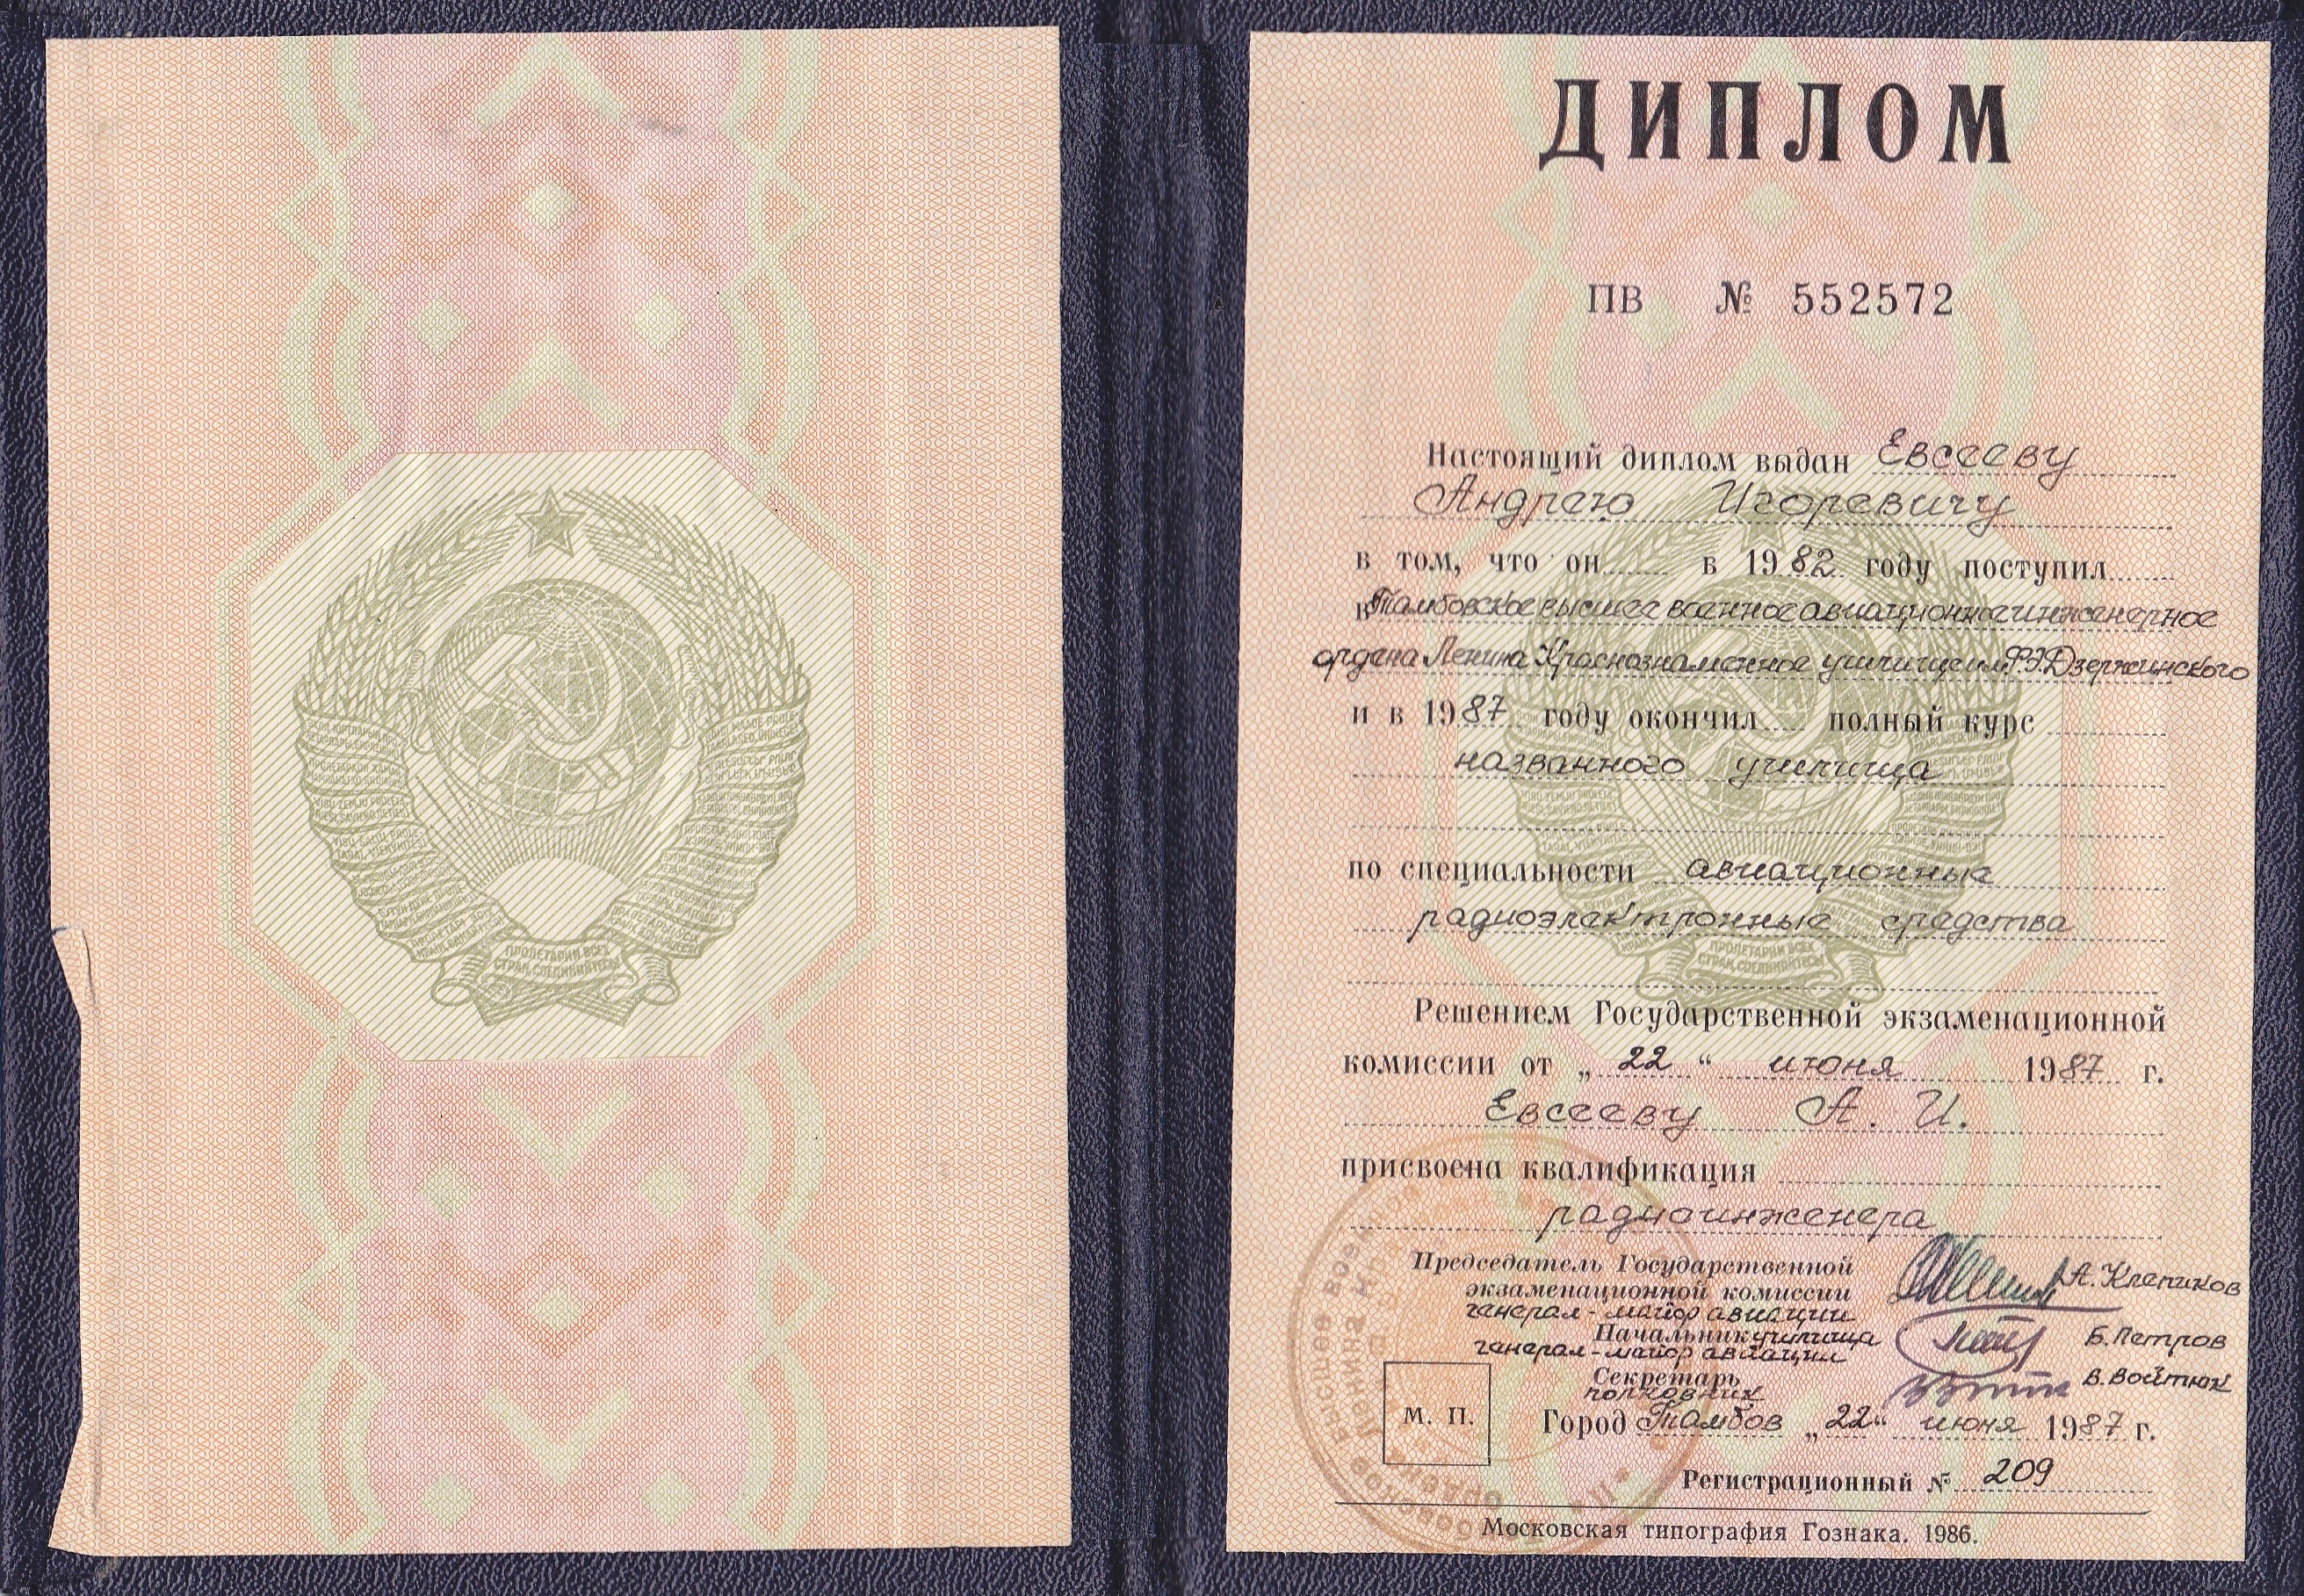 ПРОЛЕТАРИИ ВСЕХ
СТРАН, СОЕДИНЯЙТЕСЬ!
ДИПЛОМ
ПВ № 552572
Настоящий диплом выдан Евсееву
Андрею Игоревичу
в том, что он в 1982 году поступил
в Тамбовское высшее военное авиационное инженерное
ордена Ленина Краснознаменное училище им. Ф.Э. Дзержинского
и в 1987 году окончил полный курс
названного училища
по специальности авиационные
радиоэлектронные средства
Решением Государственной экзаменационной
комиссии от „22“ июня 1987 г.
Евсееву А. И.
присвоена квалификация
радиоинженера
Председатель Государственной
экзаменационной комиссии
генерал-майор авиации А. Клепиков
Начальник училища
генерал-майор авиации Б. Петров
Секретарь
полковник В. Войтюк
М. П.
Город Тамбов „22“ июня 1987 г.
Регистрационный № 209
Московская типография Гознака. 1986.